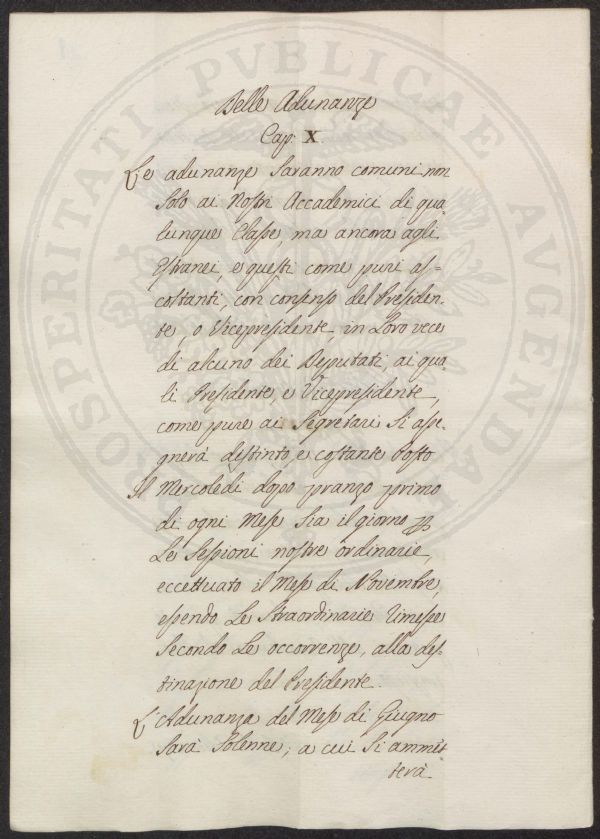 Delle Adunanze
Cap: X.
Le adunanze saranno comuni non
solo ai Nostri Accademici di qua
lunque Classe, ma ancora agli
Estranei, e questi come puri as-
coltanti, con consenso del Presiden-
te, o Vicepresidente, in Loro vece
di alcuno dei Deputati, ai qua
li Presidente, e Vicepresidente,
come pure ai Segretari si asse-
gnerà distinto, e costante Posto
Il Mercoledì dopo pranzo primo
di ogni Mese sia il giorno p
Le Sessioni nostre ordinarie,
eccettuato il Mese di Novembre,
essendo Le Straordinarie rimesse
secondo Le occorrenze, alla des-
tinazione del Presidente.
L'Adunanza del Mese di Giugno
sarà Solenne; a cui si ammet
terà
PROSPERITATI PVBLICAE AVGENDAE